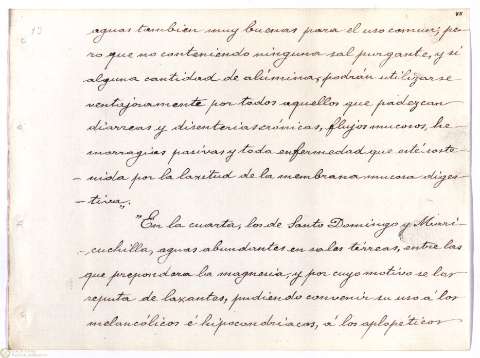 13
48
aguas tambien muy buenas para el uso comun; pe
ro que no conteniendo ninguna sal purgante, y sí
alguna cantidad de alúmina, podrán utilizarse
ventajosamente por todos aquellos que padezcan
diarreas y disenterias crónicas, flujos mucosos, he
morragias pasivas y toda enfermedad que esté soste
-nida por la laxitud de la membrana mucosa diges-
-tiva„
"En la cuarta, los de Santo Domingo y Murri-
-cuchilla, aguas abundantes en sales térreas, entre las
que prepondera la magnesia, y por cuyo motivo se las
reputa de laxantes, pudiendo convenir su uso á los
melancólicos é hipocondriacos, á los aploplécticos